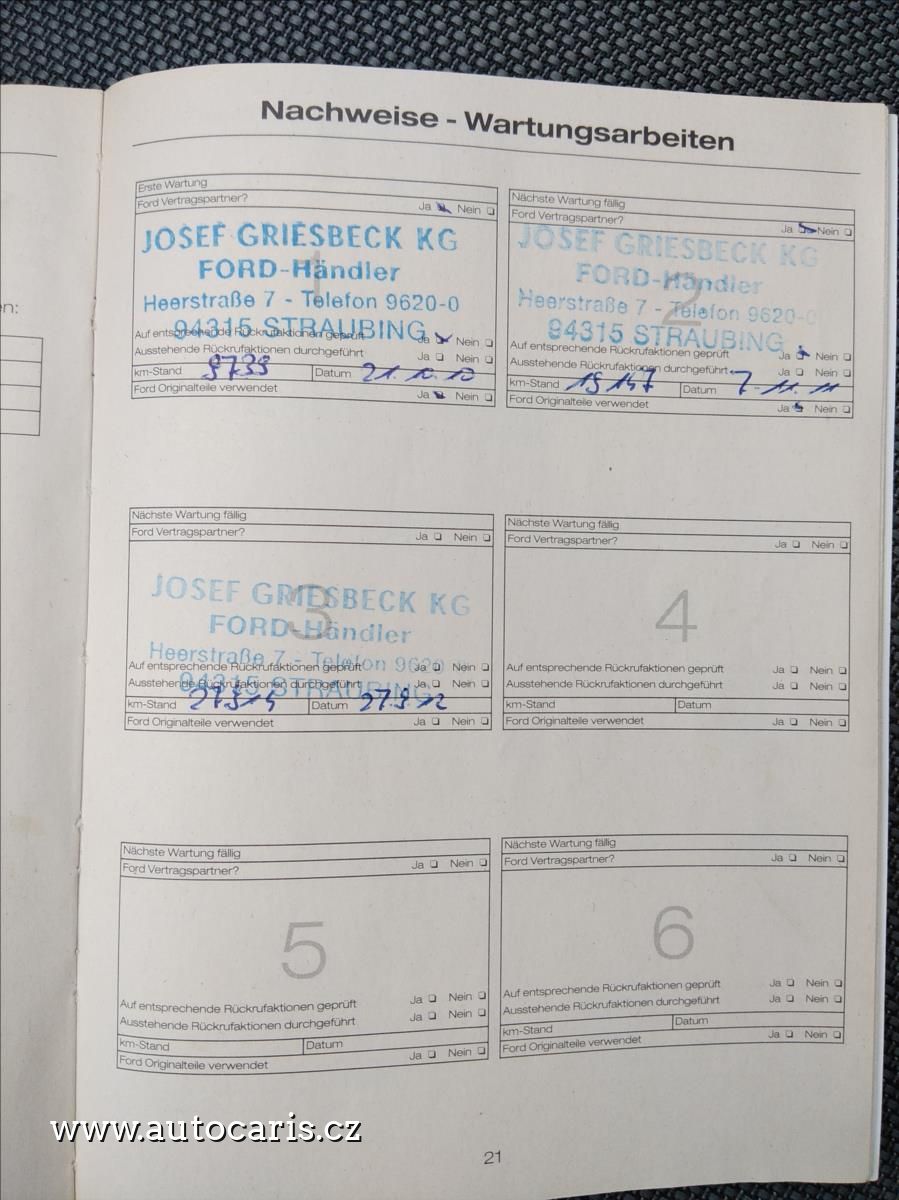 Nachweise - Wartungsarbeiten
n:
Erste Wartung
Ford Vertragspartner? Ja Nein
1
JOSEF GRIESBECK KG
FORD-Händler
Heerstraße 7 - Telefon 9620-0
94315 STRAUBING
Auf entsprechende Rückrufaktionen geprüft Ja Nein
Ausstehende Rückrufaktionen durchgeführt Ja Nein
km-Stand 9739 Datum 21.10.10
Ford Originalteile verwendet Ja Nein
Nächste Wartung fällig
Ford Vertragspartner? Ja Nein
2
JOSEF GRIESBECK KG
FORD-Händler
Heerstraße 7 - Telefon 9620-0
94315 STRAUBING
Auf entsprechende Rückrufaktionen geprüft Ja Nein
Ausstehende Rückrufaktionen durchgeführt Ja Nein
km-Stand 19147 Datum 7-11.11
Ford Originalteile verwendet Ja Nein
Nächste Wartung fällig
Ford Vertragspartner? Ja Nein
3
JOSEF GRIESBECK KG
FORD-Händler
Heerstraße 7 - Telefon 9620
94315 STRAUBING
Auf entsprechende Rückrufaktionen geprüft Ja Nein
Ausstehende Rückrufaktionen durchgeführt Ja Nein
km-Stand Datum 27.9.12
Ford Originalteile verwendet Ja Nein
Nächste Wartung fällig
Ford Vertragspartner? Ja Nein
4
Auf entsprechende Rückrufaktionen geprüft Ja Nein
Ausstehende Rückrufaktionen durchgeführt Ja Nein
km-Stand Datum
Ford Originalteile verwendet Ja Nein
Nächste Wartung fällig
Ford Vertragspartner? Ja Nein
5
Auf entsprechende Rückrufaktionen geprüft Ja Nein
Ausstehende Rückrufaktionen durchgeführt Ja Nein
km-Stand Datum
Ford Originalteile verwendet Ja Nein
Nächste Wartung fällig
Ford Vertragspartner? Ja Nein
6
Auf entsprechende Rückrufaktionen geprüft Ja Nein
Ausstehende Rückrufaktionen durchgeführt Ja Nein
km-Stand Datum
Ford Originalteile verwendet Ja Nein
www.autocaris.cz
21